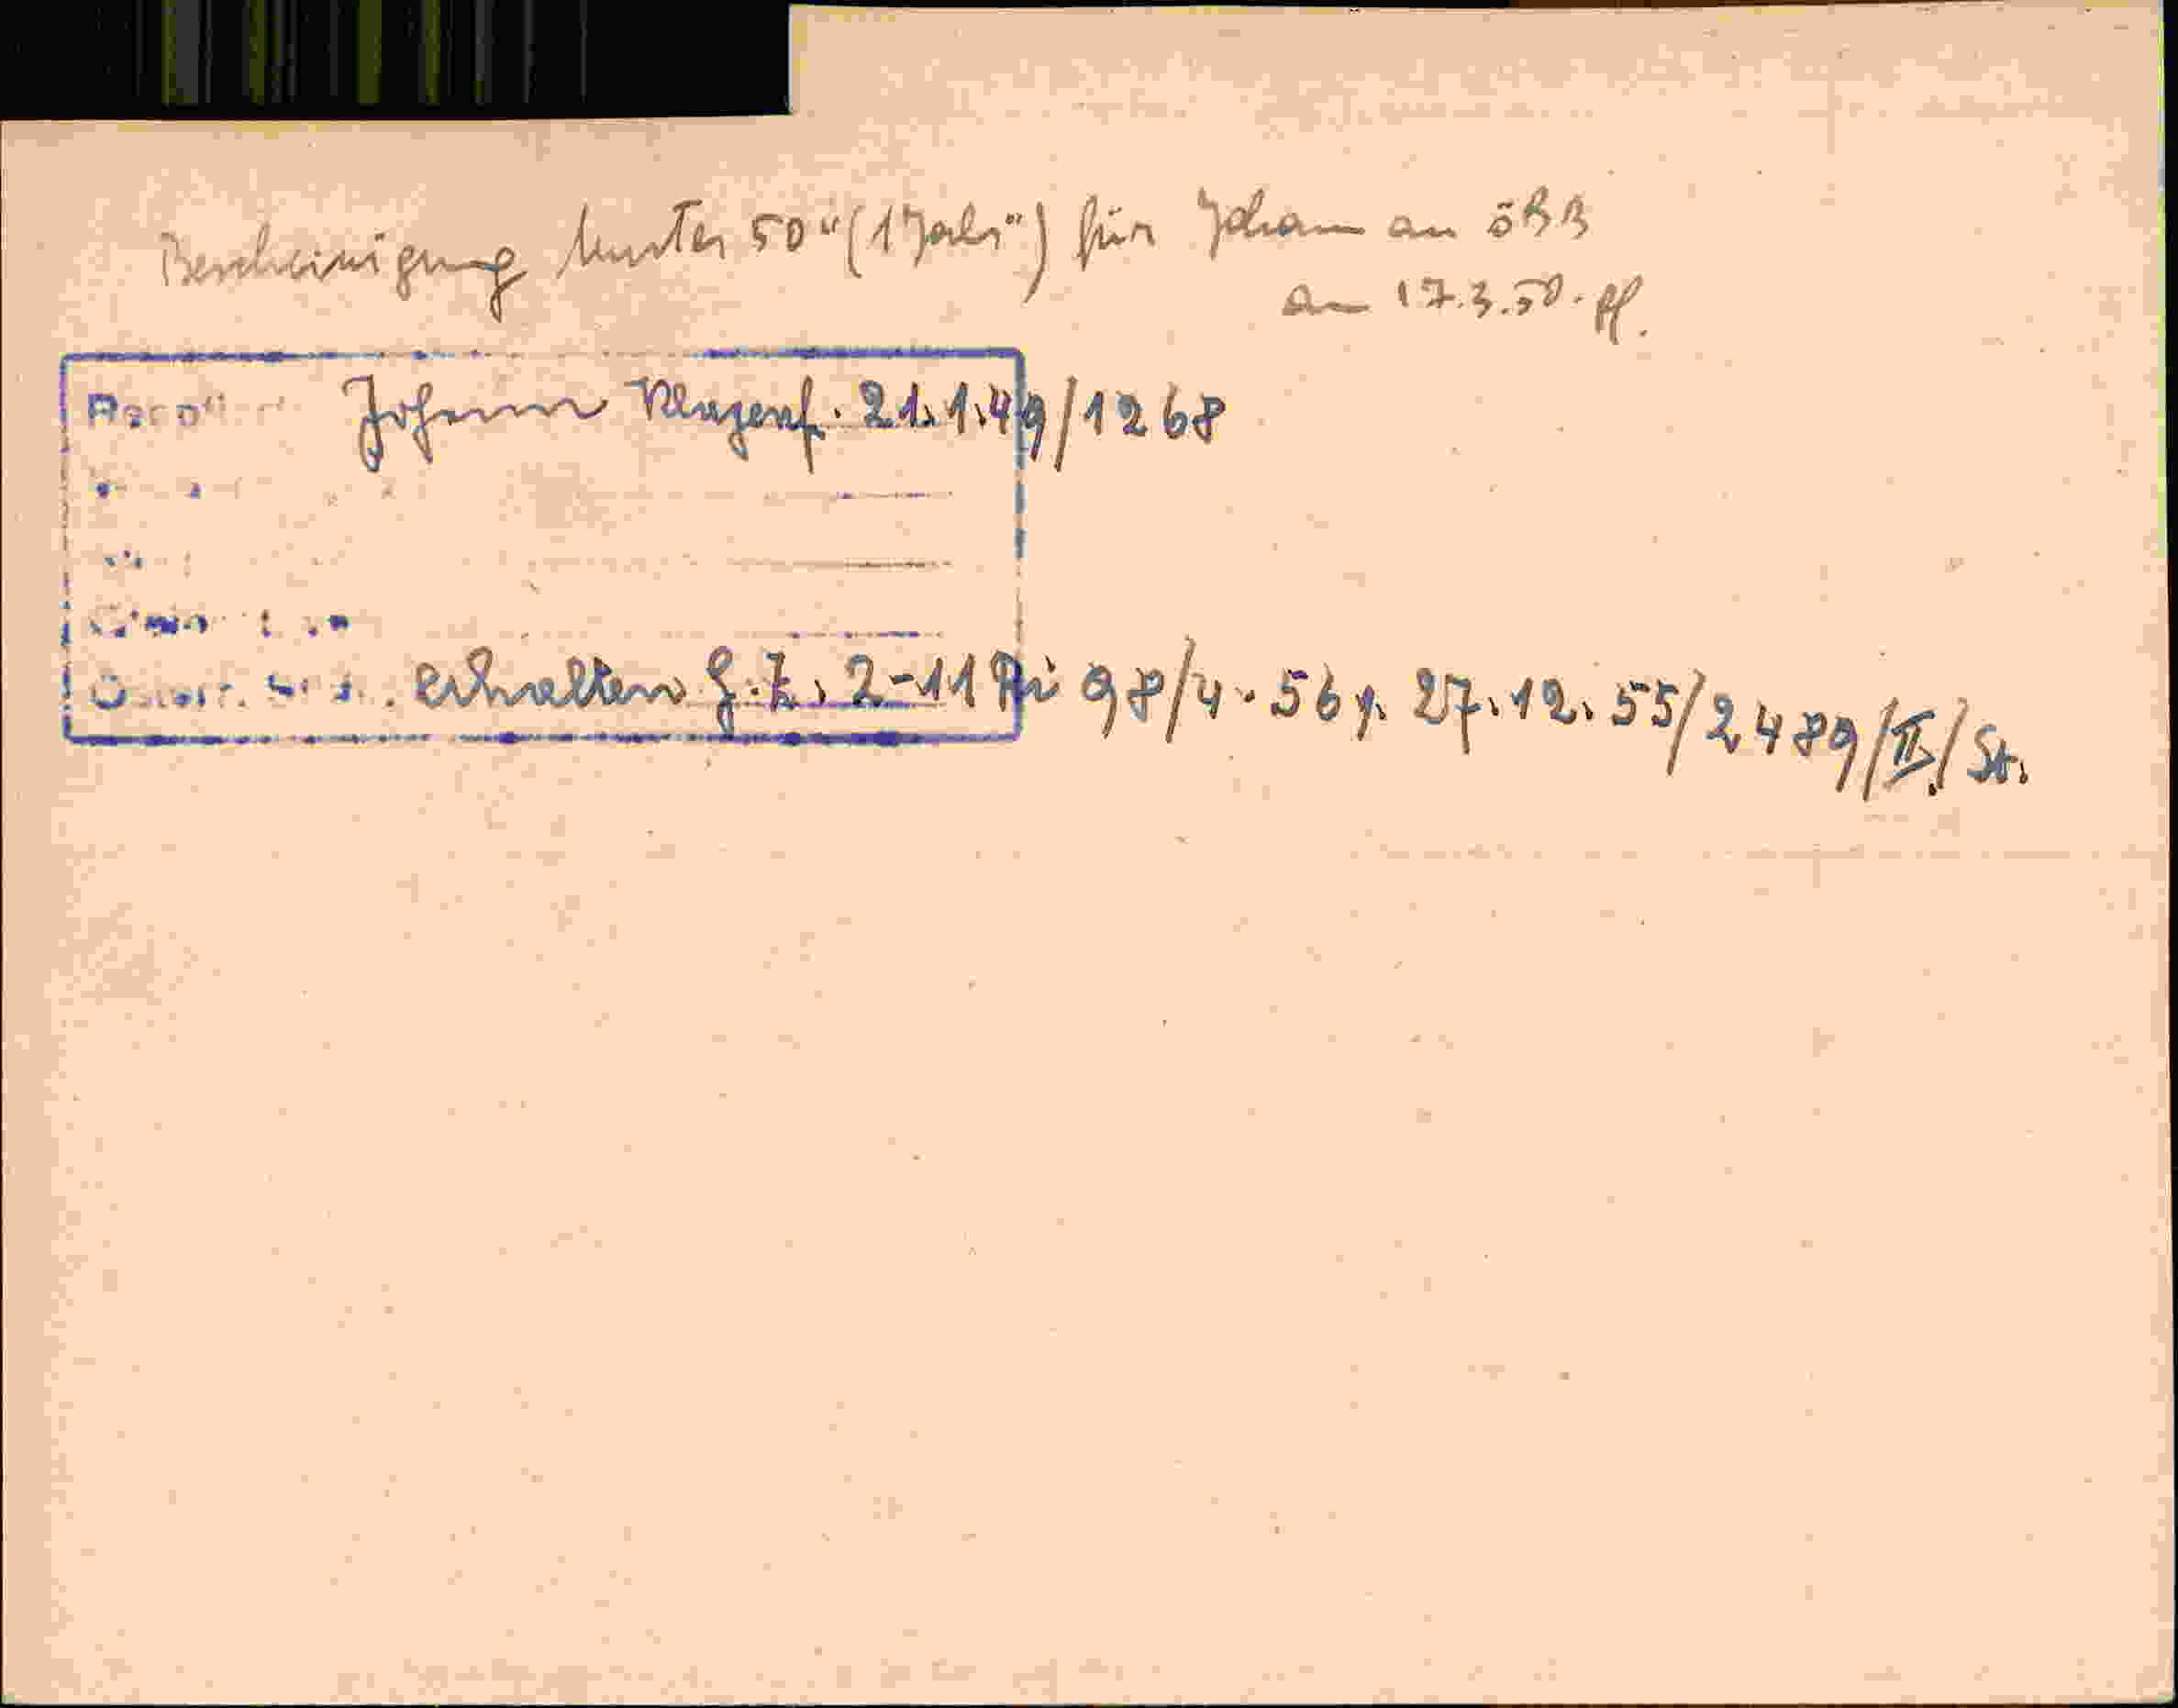 Bescheinigung Muster 50 "(1 Jahr") für Johann an öBB
am 17.3.50. Pf.
Johann Klagenf. 21.1.49/1268
erhalten G.Z. 2-11 Pi 98/4. 56 v. 27.12.55/2489/II/St.